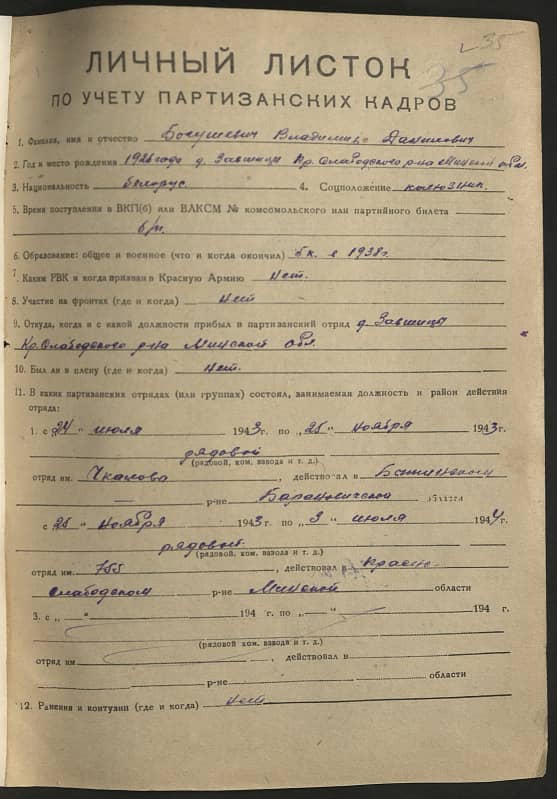 35
35
ЛИЧНЫЙ ЛИСТОК
ПО УЧЕТУ ПАРТИЗАНСКИХ КАДРОВ
1. Фамилия, имя и отчество Богушевич Владимир Данилович
2. Год и место рождения 1926 года д. Завшицы Кр. Слабодского р-на Минской обл.
3. Национальность белорус. 4. Соцположение колхозник.
5. Время поступления в ВКП(б) или ВЛКСМ № комсомольского или партийного билета
б/п.
6. Образование: общее и военное (что и когда окончил) 5 к. в 1938 г.
7. Каким РВК и когда призван в Красную Армию Нет.
8. Участие на фронтах (где и когда) Нет
9. Откуда, когда и с какой должности прибыл в партизанский отряд д. Завшицы
Кр. Слабодского р-на Минской обл.
10. Был ли в плену (где и когда) Нет.
11. В каких партизанских отрядах (или группах) состоял, занимаемая должность и район действия
отряда:
1. с „24“ июля 1943 г. по „25“ ноября 1943 г.
рядовой
(рядовой, ком. взвода и т. д.)
отряд им. Чкалова, действовал в
р-не Барановичской области
с „25“ Ноября 1943 г. по „3“ июля 1944 г.
рядовой
(рядовой, ком. взвода и т. д.)
отряд им. 755, действовал в Красно-
слабодском р-не Минской области
3. с „ “ 194 г. по „ “ 194 г.
(рядовой ком. взвода и т. д.)
отряд им , действовал в
р-не области
12. Ранения и контузии (где и когда) Нет